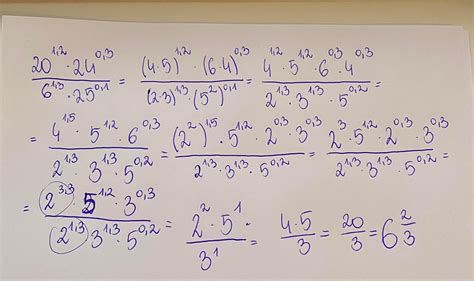 20^1,2 · 24^0,3 / 6^1,3 · 25^0,1 = (4·5)^1,2 · (6·4)^0,3 / (2·3)^1,3 · (5^2)^0,1 = 4^1,2 · 5^1,2 · 6^0,3 · 4^0,3 / 2^1,3 · 3^1,3 · 5^0,2 =
= 4^1,5 · 5^1,2 · 6^0,3 / 2^1,3 · 3^1,3 · 5^0,2 = (2^2)^1,5 · 5^1,2 · 2^0,3 · 3^0,3 / 2^1,3 · 3^1,3 · 5^0,2 = 2^3 · 5^1,2 · 2^0,3 · 3^0,3 / 2^1,3 · 3^1,3 · 5^0,2 =
= 2^3,3 · 5^1,2 · 3^0,3 / 2^1,3 3^1,3 · 5^0,2 = 2^2 · 5^1 · / 3^1 = 4·5 / 3 = 20 / 3 = 6 2/3